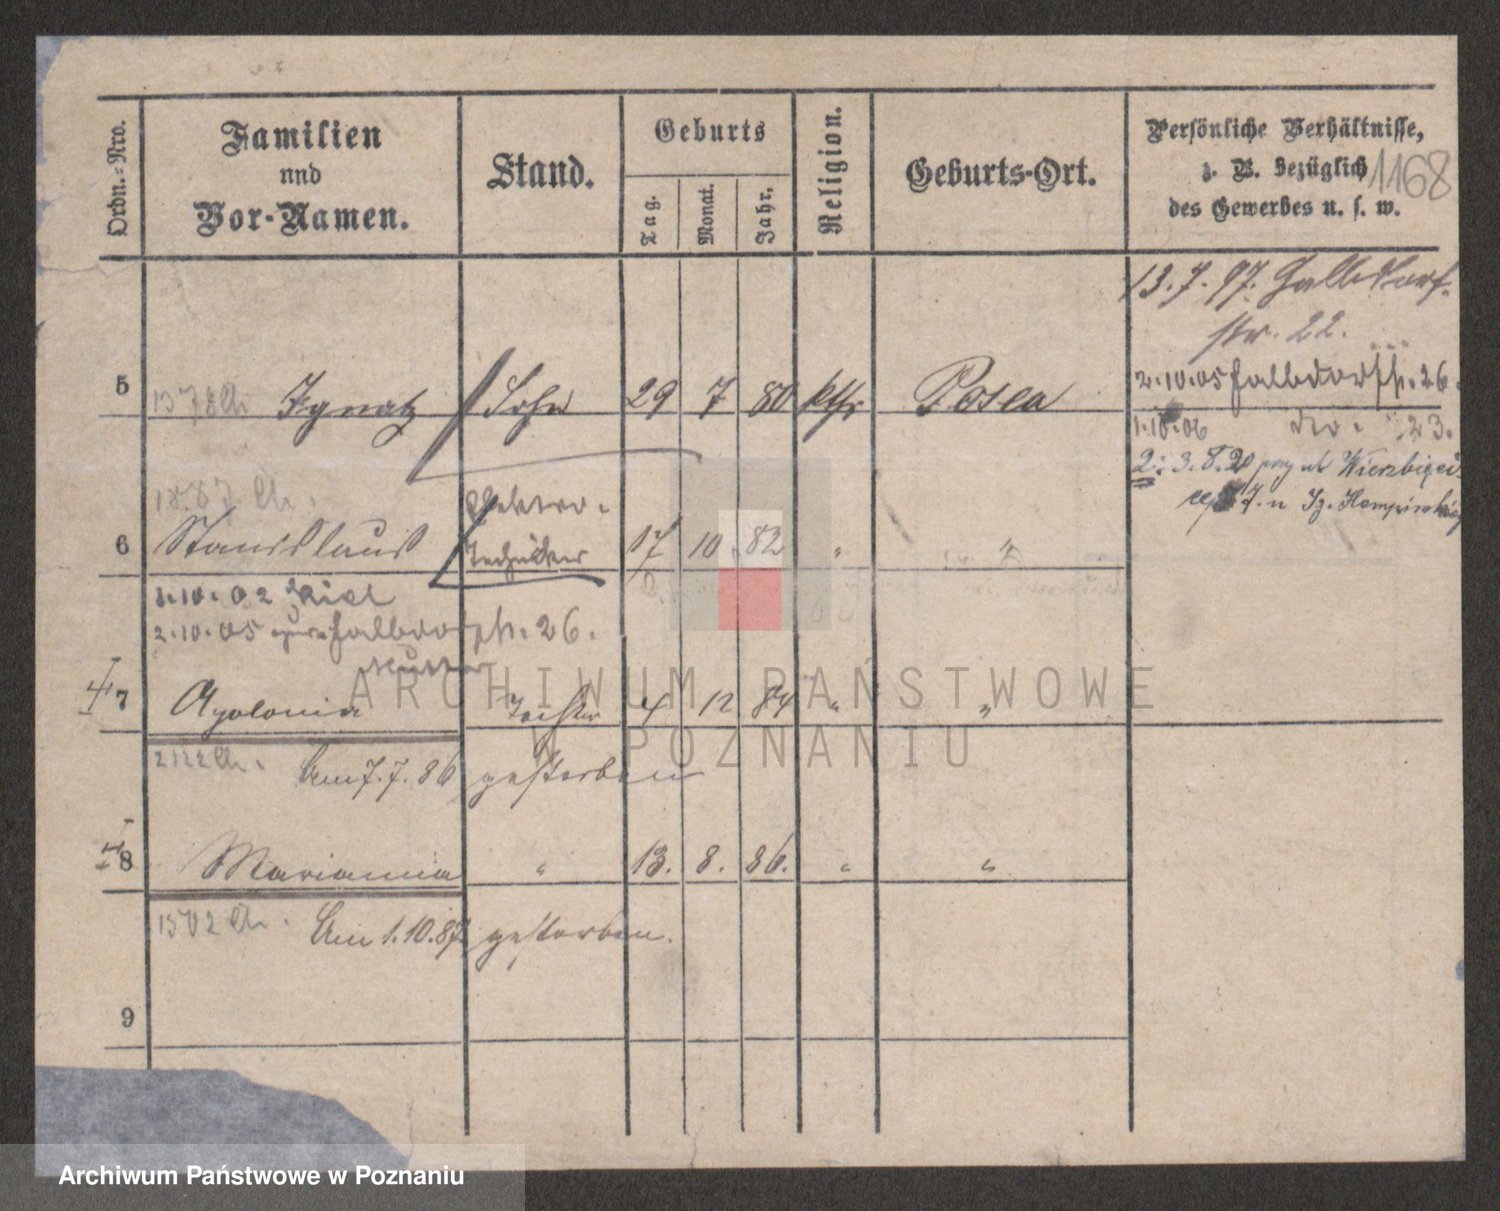 Ordn.-Nro.
Familien
und
Vor-Namen.
Stand.
Geburts
Tag.
Monat.
Jahr.
Religion.
Geburts-Ort.
Persönliche Verhältnisse,
z. B. bezüglich
des Gewerbes u. s. w.
1168
13.7.97. Halbdorf-
str. 22.
2.10.05 Halbdorfstr. 26.
5 Ignatz Sohn 29 7 80 kth Posen
1.10.06 dto. 23.
2: 3.8.20
1887
Elektro-
6 Stanislaus Techniker 17 10 82 " "
1.10.02 Kiel
2.10.05 Halbdorfstr. 26.
Mutter
7 Apolonia Tochter 4 12 84 " "
2122 Am 7.7.86 gestorben
8 Marianna " 13. 8. 86. " "
1502 Am 1.10.87 gestorben.
9
ARCHIWUM PAŃSTWOWE
W POZNANIU
Archiwum Państwowe w Poznaniu